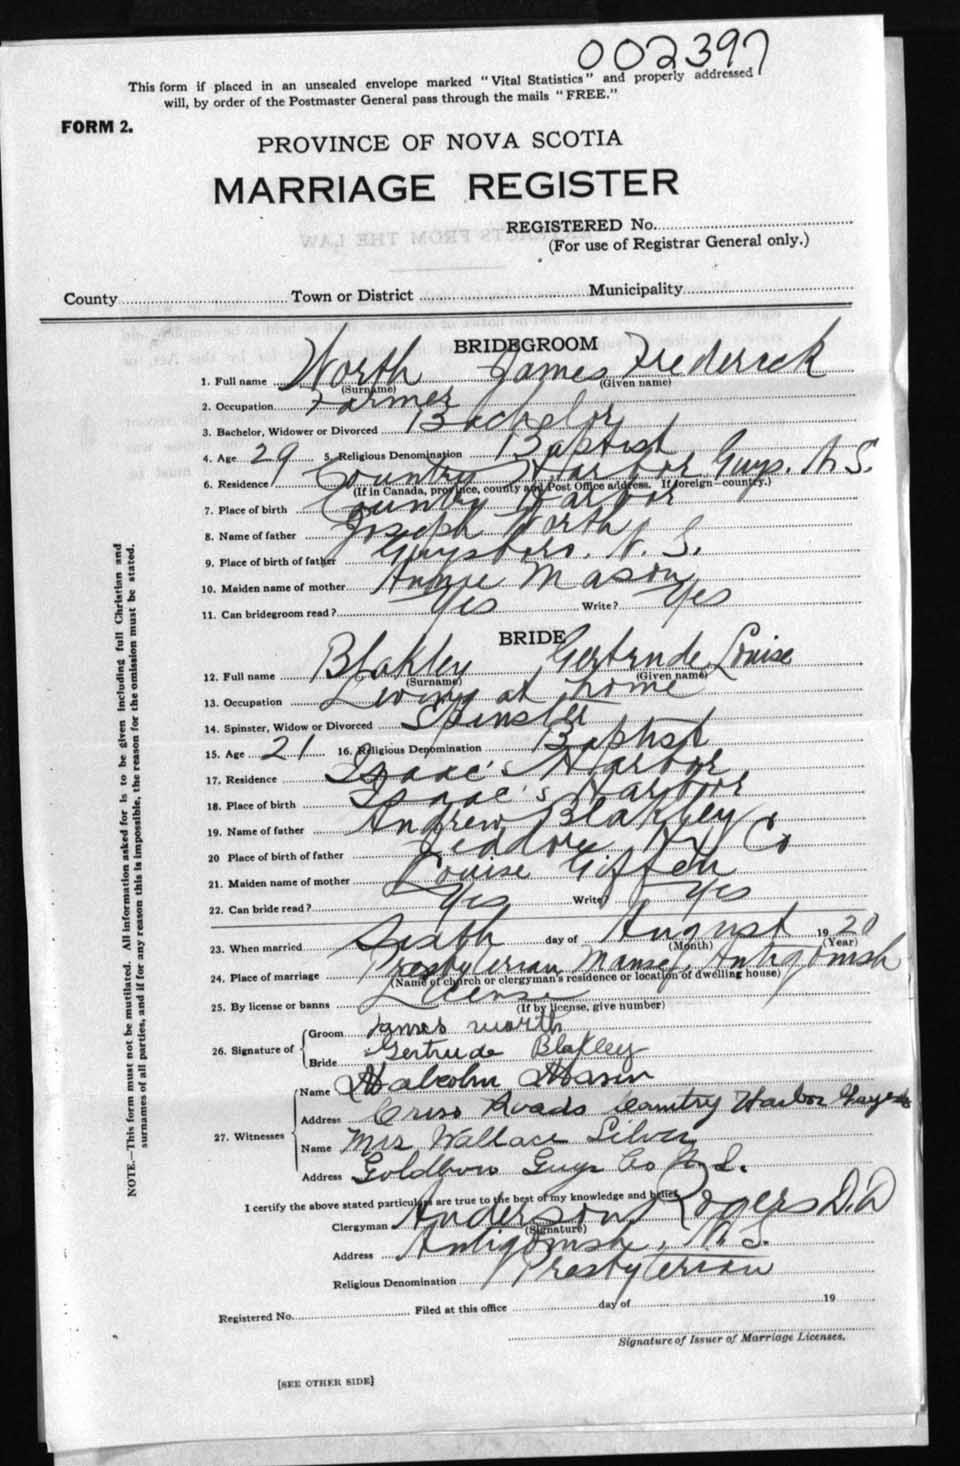 002397
This form if placed in an unsealed envelope marked "Vital Statistics" and properly addressed
will, by order of the Postmaster General pass through the mails "FREE."
FORM 2.
PROVINCE OF NOVA SCOTIA
MARRIAGE REGISTER
REGISTERED No.
(For use of Registrar General only.)
County Town or District Municipality
BRIDEGROOM
1. Full name Worth James Frederick
(Surname) (Given name)
2. Occupation Farmer
3. Bachelor, Widower or Divorced Bachelor
4. Age 29 5. Religious Denomination Baptist
6. Residence Country Harbor Guys. N.S.
(If in Canada, province, county and Post Office address. If foreign—country.)
7. Place of birth Country Harbor
8. Name of father Joseph Worth
9. Place of birth of father Guysboro. N.S.
10. Maiden name of mother Annie Mason
11. Can bridegroom read? Yes Write? Yes
BRIDE
12. Full name Blakley Gertrude Louise
(Surname) (Given name)
13. Occupation Living at home
14. Spinster, Widow or Divorced Spinster
15. Age 21 16. Religious Denomination Baptist
17. Residence Isaac's Harbor
18. Place of birth Isaac's Harbor
19. Name of father Andrew Blakley
20 Place of birth of father Co
21. Maiden name of mother Louise Giffen
22. Can bride read? Yes Write? Yes
23. When married Sixth day of August 1920
(Month) (Year)
24. Place of marriage Presbyterian Manse, Antigonish
(Name of church or clergyman's residence or location of dwelling house)
25. By license or banns License
(If by license, give number)
26. Signature of Groom James Worth
Bride Gertrude Blakley
27. Witnesses Name Malcolm Mason
Address Cross Roads Country Harbor
Name Mrs Wallace Silver
Address Goldboro Guys Co N.S.
I certify the above stated particulars are true to the best of my knowledge and belief.
Clergyman Anderson Rogers D.D
(Signature)
Address Antigonish, N.S.
Religious Denomination Presbyterian
Registered No. Filed at this office day of 19
Signature of Issuer of Marriage Licenses.
[SEE OTHER SIDE]
NOTE.—This form must not be mutilated. All information asked for is to be given including full Christian and
surnames of all parties, and if for any reason this is impossible, the reason for the omission must be stated.